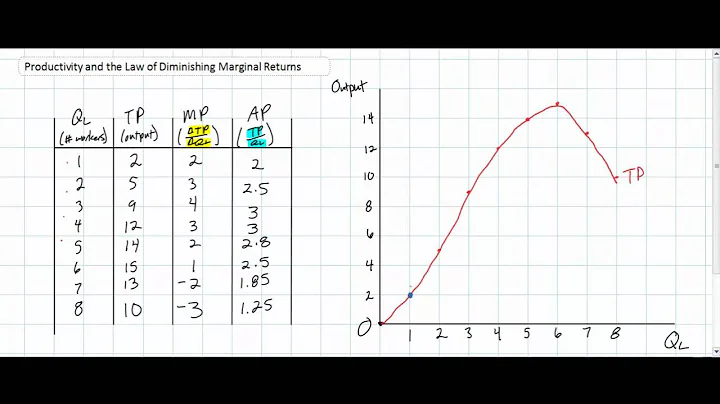 Productivity and the Law of Diminishing Marginal Returns
QL TP MP AP
(# workers) (output) (ΔTP/ΔQL) (TP/QL)
1 2 2 2
2 5 3 2.5
3 9 4 3
4 12 3 3
5 14 2 2.8
6 15 1 2.5
7 13 -2 1.85
8 10 -3 1.25
Output
14
12
10
8
6
4
2
0
TP
1 2 3 4 5 6 7 8 QL